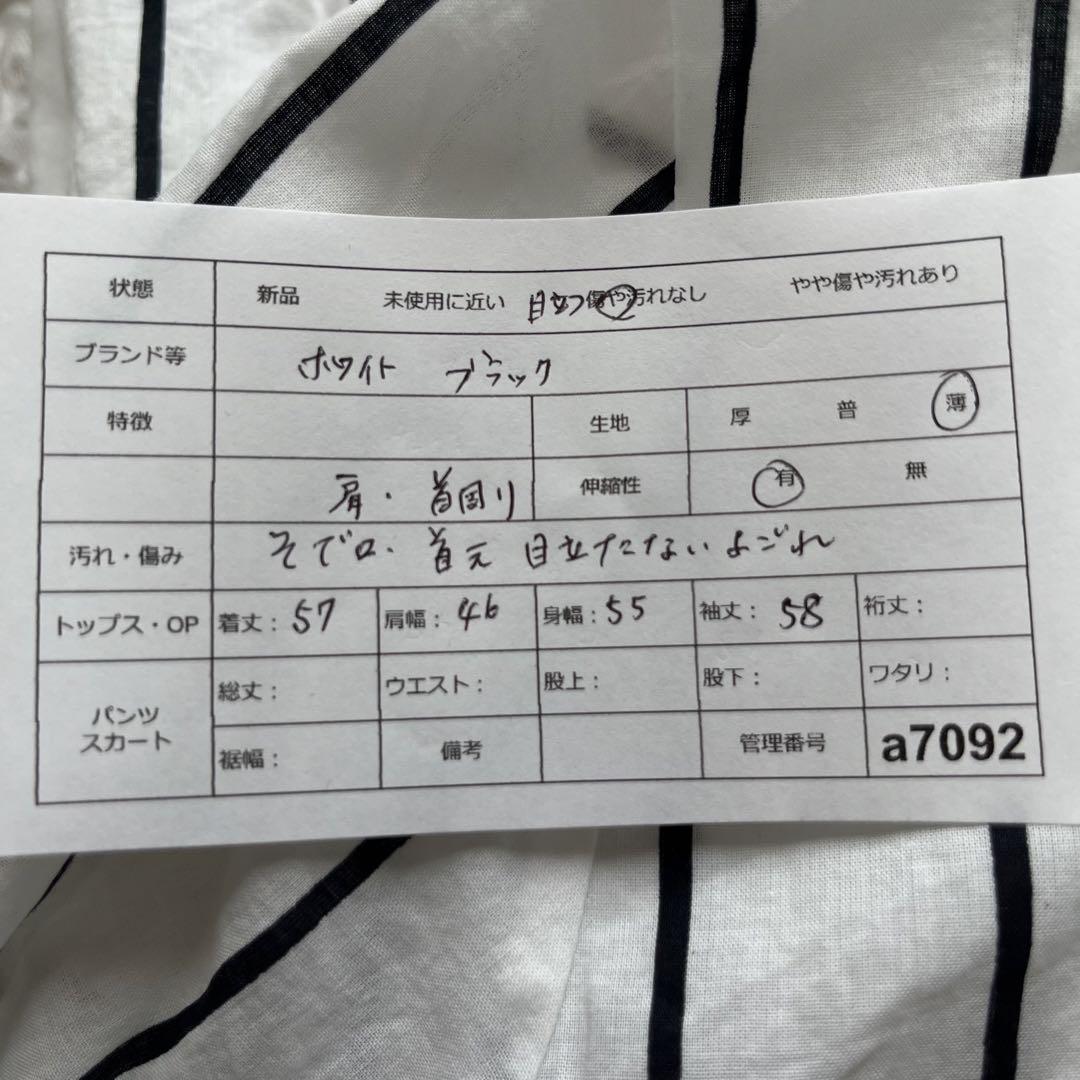 状態 新品 未使用に近い 目立つ傷や汚れなし やや傷や汚れあり
ブランド等 ホワイト ブラック
特徴 生地 厚 普 薄
肩・首周り 伸縮性 有 無
汚れ・傷み そで口・首元 目立たないよごれ
トップス・OP 着丈:57 肩幅:46 身幅:55 袖丈:58 裄丈:
パンツ スカート 総丈: ウエスト: 股上: 股下: ワタリ:
裾幅: 備考 管理番号 a7092